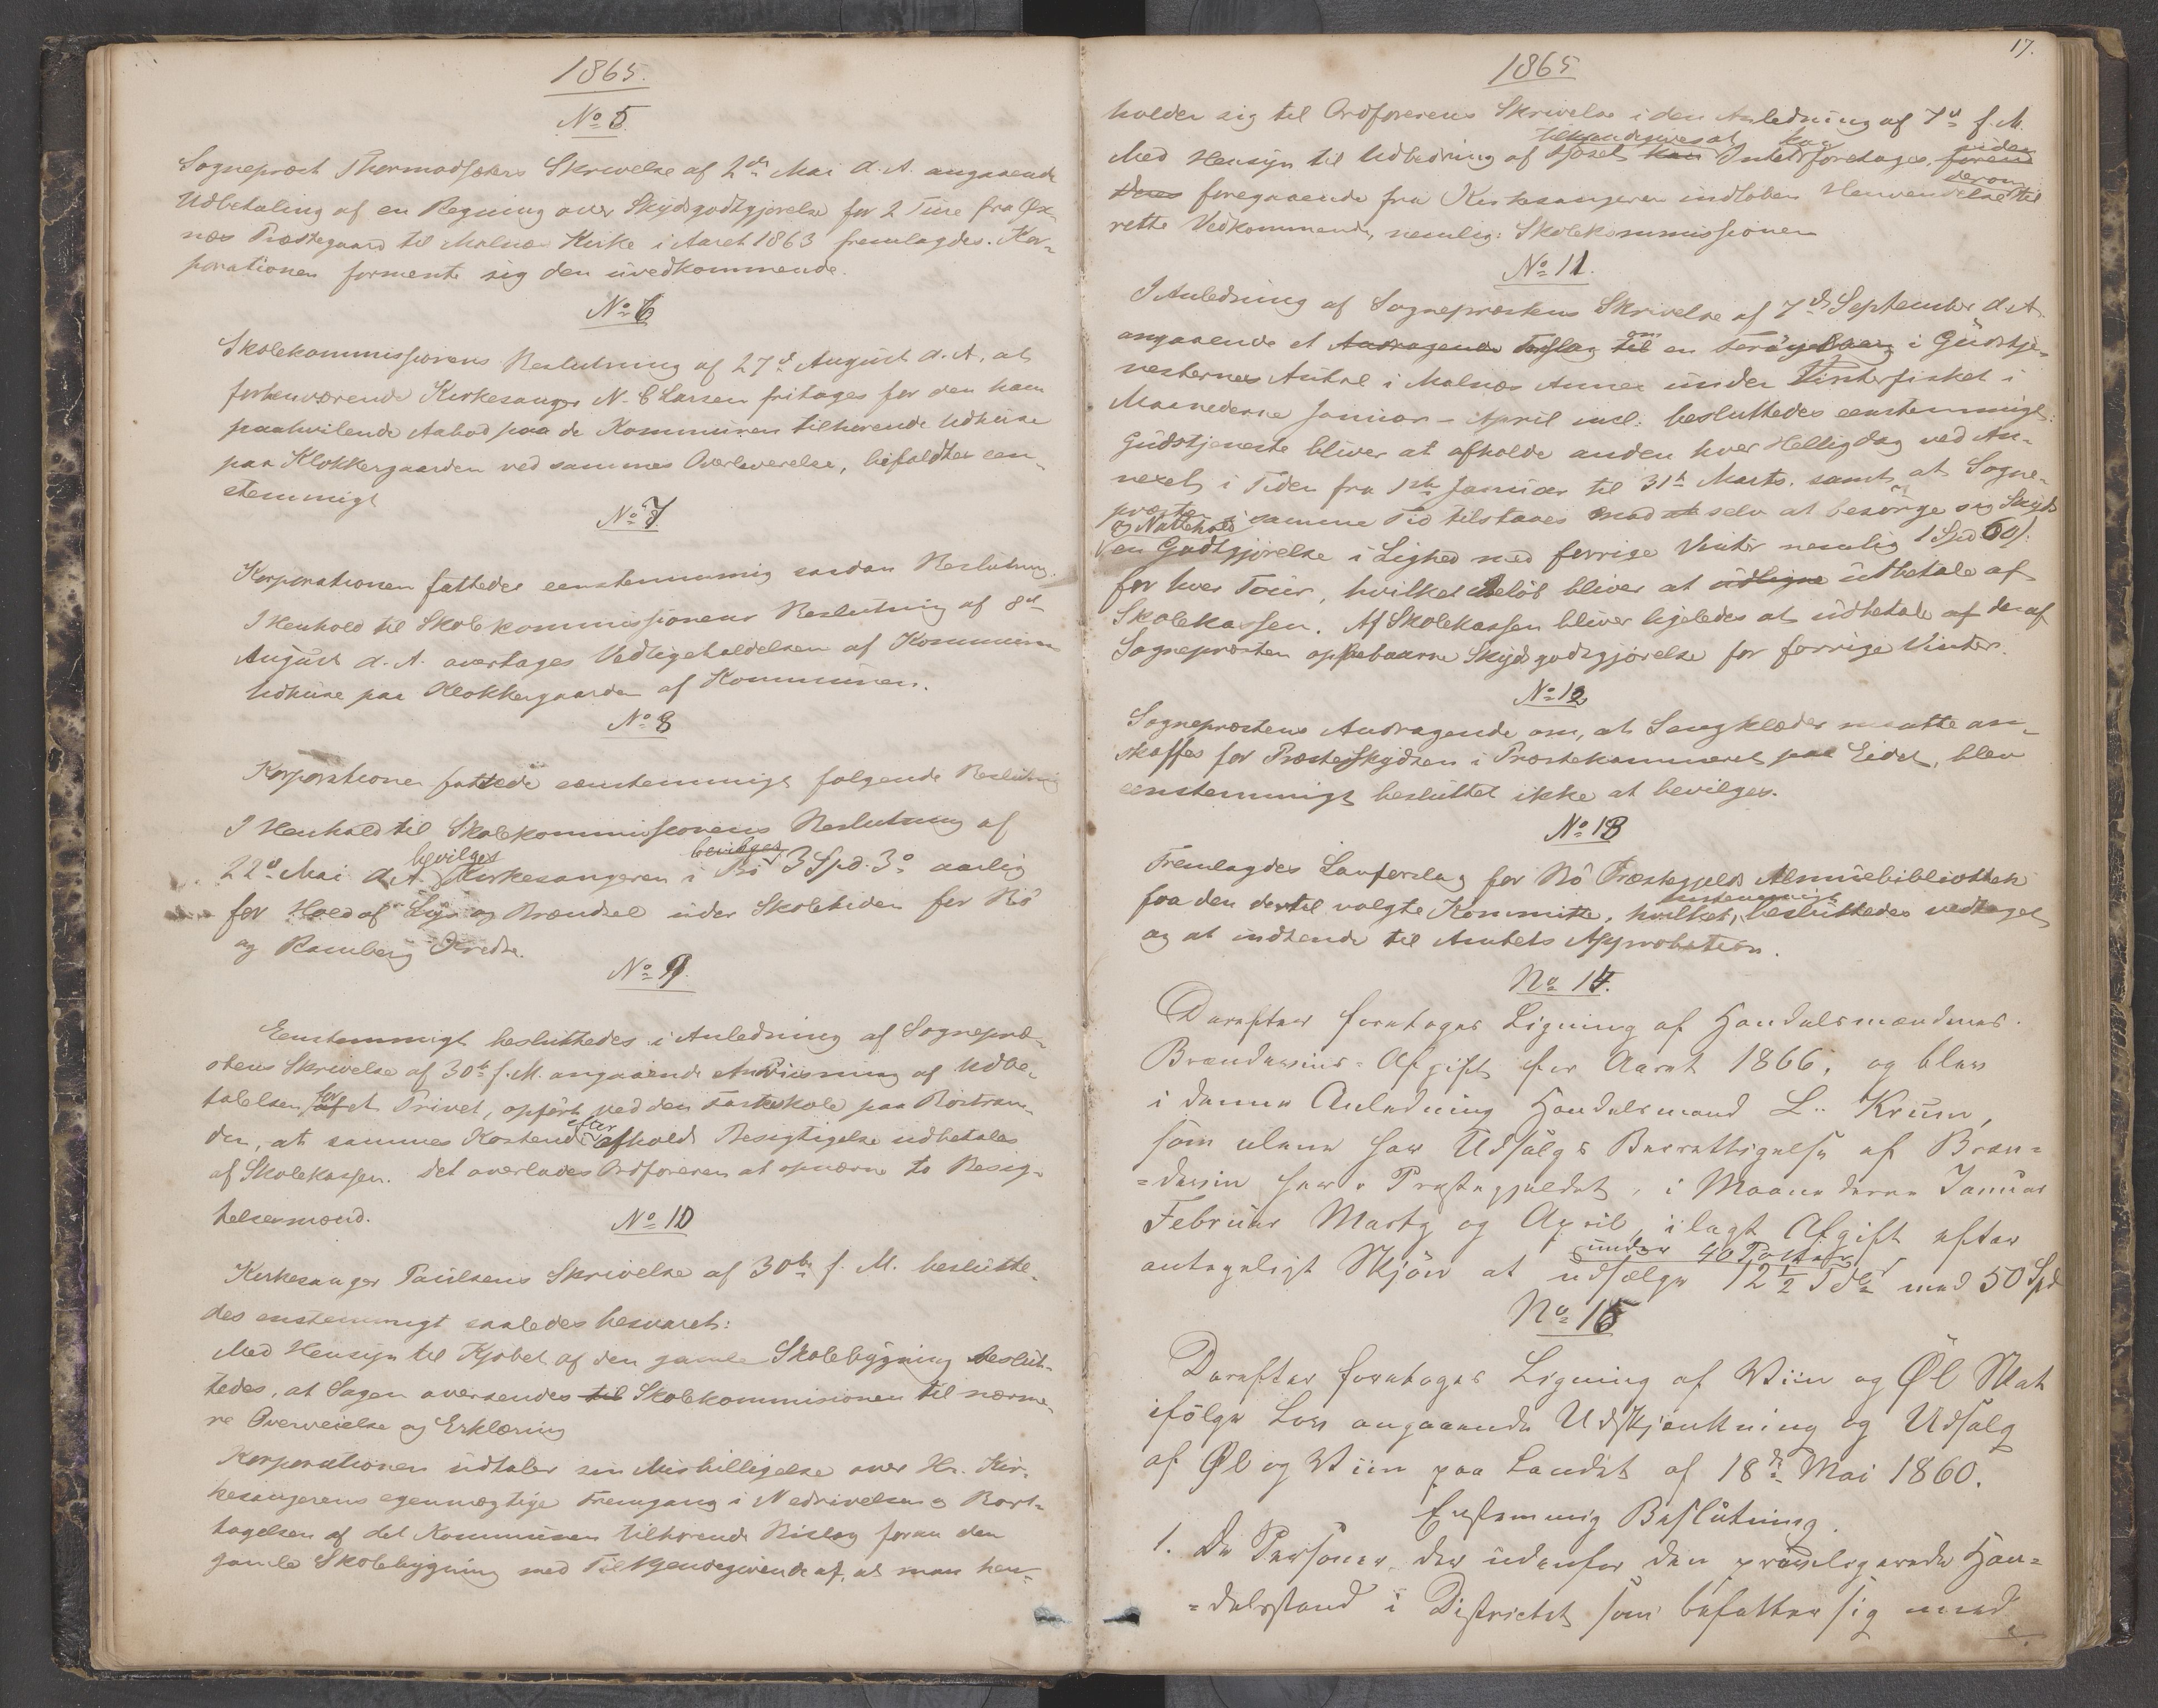 1865.
No 5
Sogneprest Thormodsæters Skrivelse af 2den Mai d. A. angaaende
Udbetaling af en Regning over Skydsgodtgjørelse for 2 Ture fra Øx-
næs Præstegaard til Malnæs Kirke i Aaret 1863 fremlagdes. Kor-
porationen formente sig den uvedkommende.
No 6
Skolekommissionens Beslutning af 27de August d. A. at
forhenværende Kirkesanger N. C Larsen fritages for den ham
paahvilende Aabod paa de Kommunen tilhørende Udhuse
paa Klokkergaarden ved sammes Overleverelse, bifaldtes een-
stemmigt
No 7
Korporationen fattede eenstemmig saadan Beslutning:
I Henhold til Skolekommissionens Beslutning af 8de
August d. A. overtages Vedligeholdelsen af Kommunens
Udhuse paa Klokkergaarden af Kommunen.
No 8
Korporationen fattede eenstemmigt følgende Beslutning
I Henhold til Skolekommissionens Beslutning af
22de Mai d. A. bevilges Kirkesangeren i Bö bevilges 3 Spd. 3o aarlig
for Hold af Lys og Brændsel under Skoletiden for Bö
og Ramberg Kredse.
No 9.
Eenstemmigt besluttedes i Anledning af Sognepræ-
stens Skrivelse af 30te f. M. angaaende Anviisning af Udbe-
talelsen for af et Privet, opført ved den faste Skole paa Böstran-
den, at sammes Kostende efter afholdt Besigtigelse udbetales
af Skolekassen. Det overlodes Ordføreren at opnævne to Besig-
telsesmænd.
No 10
Kirkesanger Paulsens Skrivelse af 30te f. M. beslutte-
des enstemmigt saaledes besvaret:
Med Hensyn til Kjøbet af den gamle Skolebygning beslut-
tedes, at Sagen oversendes til Skolekommissionen til nærme-
re Overveielse og Erklæring
Korporationen udtaler sin Misbilligelse over Hr. Kir-
kesangerens egenmægtige Fremgang i Nedrivelsen og Bort-
tagelsen af det Kommunen tilhørende Bislag foran den
gamle Skolebygning med Tilkjendegivende af, at man hen-
17.
1865
holder sig til Ordførerens Skrivelse i den Anledning af 7de f. M.
Med Hensyn til Udbedring af Fjøset tilkjendegives at kan Intet kan foretages, uden forend
deres foregaaende fra Kirkesangeren indløben Henvendelse derom til
rette Vedkommende, nemlig: Skolekommissionen
No 11.
I Anledning af Sogneprestens Skrivelse af 7de September d. A.
angaaende et Andragende Forslag til om en Forøgelse i Gudstje-
nesternes Antal i Malnæs Annex under Vinterfisket i
Maanederne Januar - April incl. besluttedes eenstemmigt:
Gudstjeneste bliver at afholde anden hver Helligdag ved An-
nexet i Tiden fra 1ste Januar til 31te Marts. samt at Sogne-
præsten i samme Tid tilstaaes mod at selv at besørge sig Skyds
og Nattehold en Godtgjørelse i Lighed med forrige Vinter nemlig 1 Spd 60 s.
for hver Tour, hvilket Beløb bliver at udligne udbetale af
Skolekassen. Af Skolekassen bliver ligeledes at udbetale af den af
Sognepresten oppebaarne Skydsgodtgjørelse for forrige Vinter.
No 12
Sogneprestens Andragende om, at Sengklæder maatte an-
skaffes for Præsteskydsen i Præstekammeret paa Eidet, blev
eenstemmigt besluttet ikke at bevilges.
No 13
Fremlagdes Lovforslag for Bö Præstegjelds Almuebibliothek
fra den dertil valgte Kommitte, hvilket eenstemmigt besluttedes vedtaget
og at indsende til Amtets Approbation.
No 14.
Derefter foretoges Ligning af Handelsmændenes
Brændeviins-Afgift for Aaret 1866, og blev
i denne Anledning Handelsmand L. Krum,
som alene har Udsalgs Berettigelse af Bræn-
=deviin her i Præstegjeldet, i Maanederne Januar
Februar Marts og April, ilagt Afgift efter
antageligt Skjön at udsælge under 40 Potter 12 1/2 Tdr med 50 Spd
No 15
Derefter foretoges Ligning af Viin og Øl Skat
ifölge Lov angaaende Udskjenkning og Udsalg
af Øl og Viin paa Landet af 18de Mai 1860.
Enstemmig Beslutning.
1. De Personer, der udenfor den previligerede Han=
=delsstand i Distriktet som befatter sig med